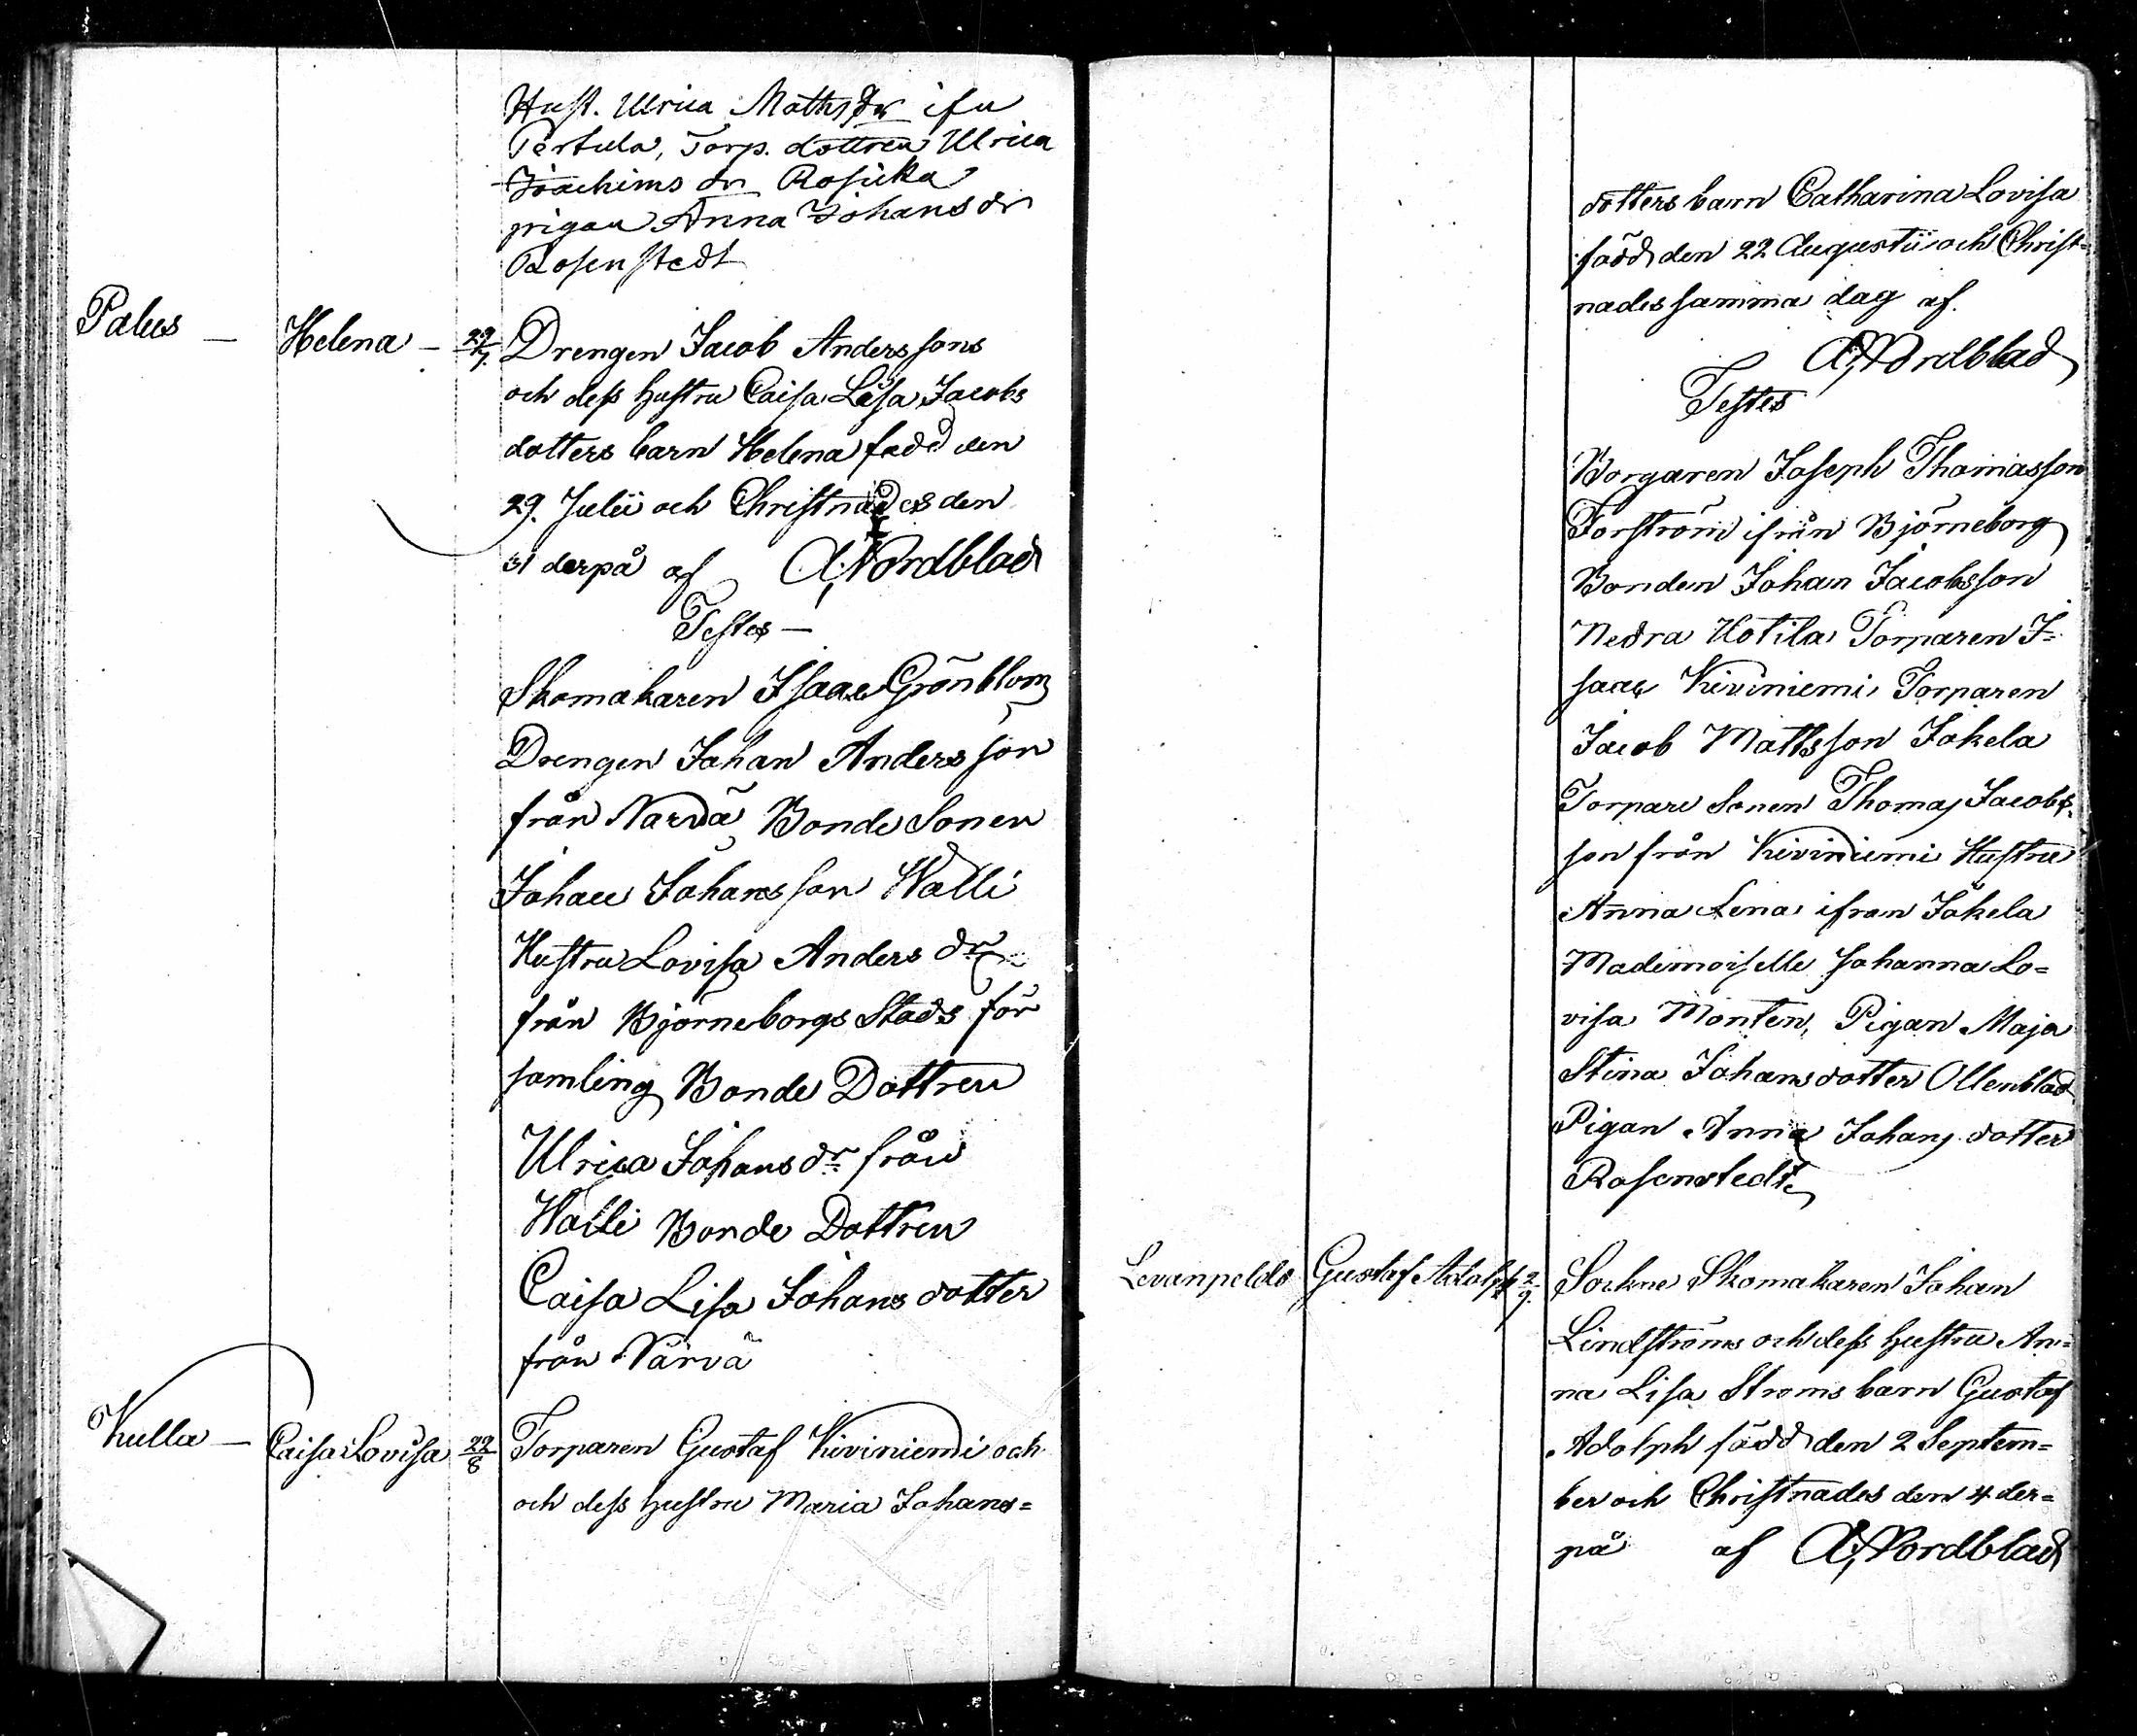 Hust. Ulrica Mattsdr ifn
Pertula, Torp. dottren Ulrica
Joachims dr Rosicka
pigan Anna Johans dr
Rosenstedt
Palus — Helena — 29/7. Drengen Jacob Anderssons
och dess hustru Caisa Lisa Jacobs
dotters barn Helena född den
29. Julii och Christnades den
31 derpå af A, Nordblad
Testes —
Skomakaren Isaac Grönblom
Drengen Johan Andersson
från Narvä Bonde Sonen
Johan Johansson Walli
Hustru Lovisa Anders dr
från Björneborgs Stads för
samling Bonde Dottren
Ulrica Johans dr från
Walli Bonde Dottren
Caisa Lisa Johans dotter
från Närvä
Kulla — Caisa Lovisa 22/8 Torparen Gustaf Kiviniemi och
och dess hustru Maria Johans=
dotters barn Catharina Lovisa
född den 22 Augustii och Christ=
nades samma dag af.
A, Nordblad
Testes
Borgaren Joseph Thomasson
Forström ifrån Björneborg
Bonden Johan Jacobsson
Nedra Hotila Torparen I=
saac Kiviniemi Torparen
Jacob Mattsson Jokela
Torpare Sonen Thomas Jacobs=
son från Kiviniemi Hustru
Anna Lena ifran Jokela
Mademoiselle Johanna Lo=
visa Monten, Pigan Maja
Stina Johansdotter Ollenblad
Pigan Anna Johans dotter
Rosenstedt
Levanpelds Gustaf Adolph 2/9. Sockne Skomakaren Johan
Lindströms och dess hustru An=
na Lisa Stroms barn Gustaf
Adolph född den 2 Septem=
ber och Christnades den 4 der=
på af A, Nordblad